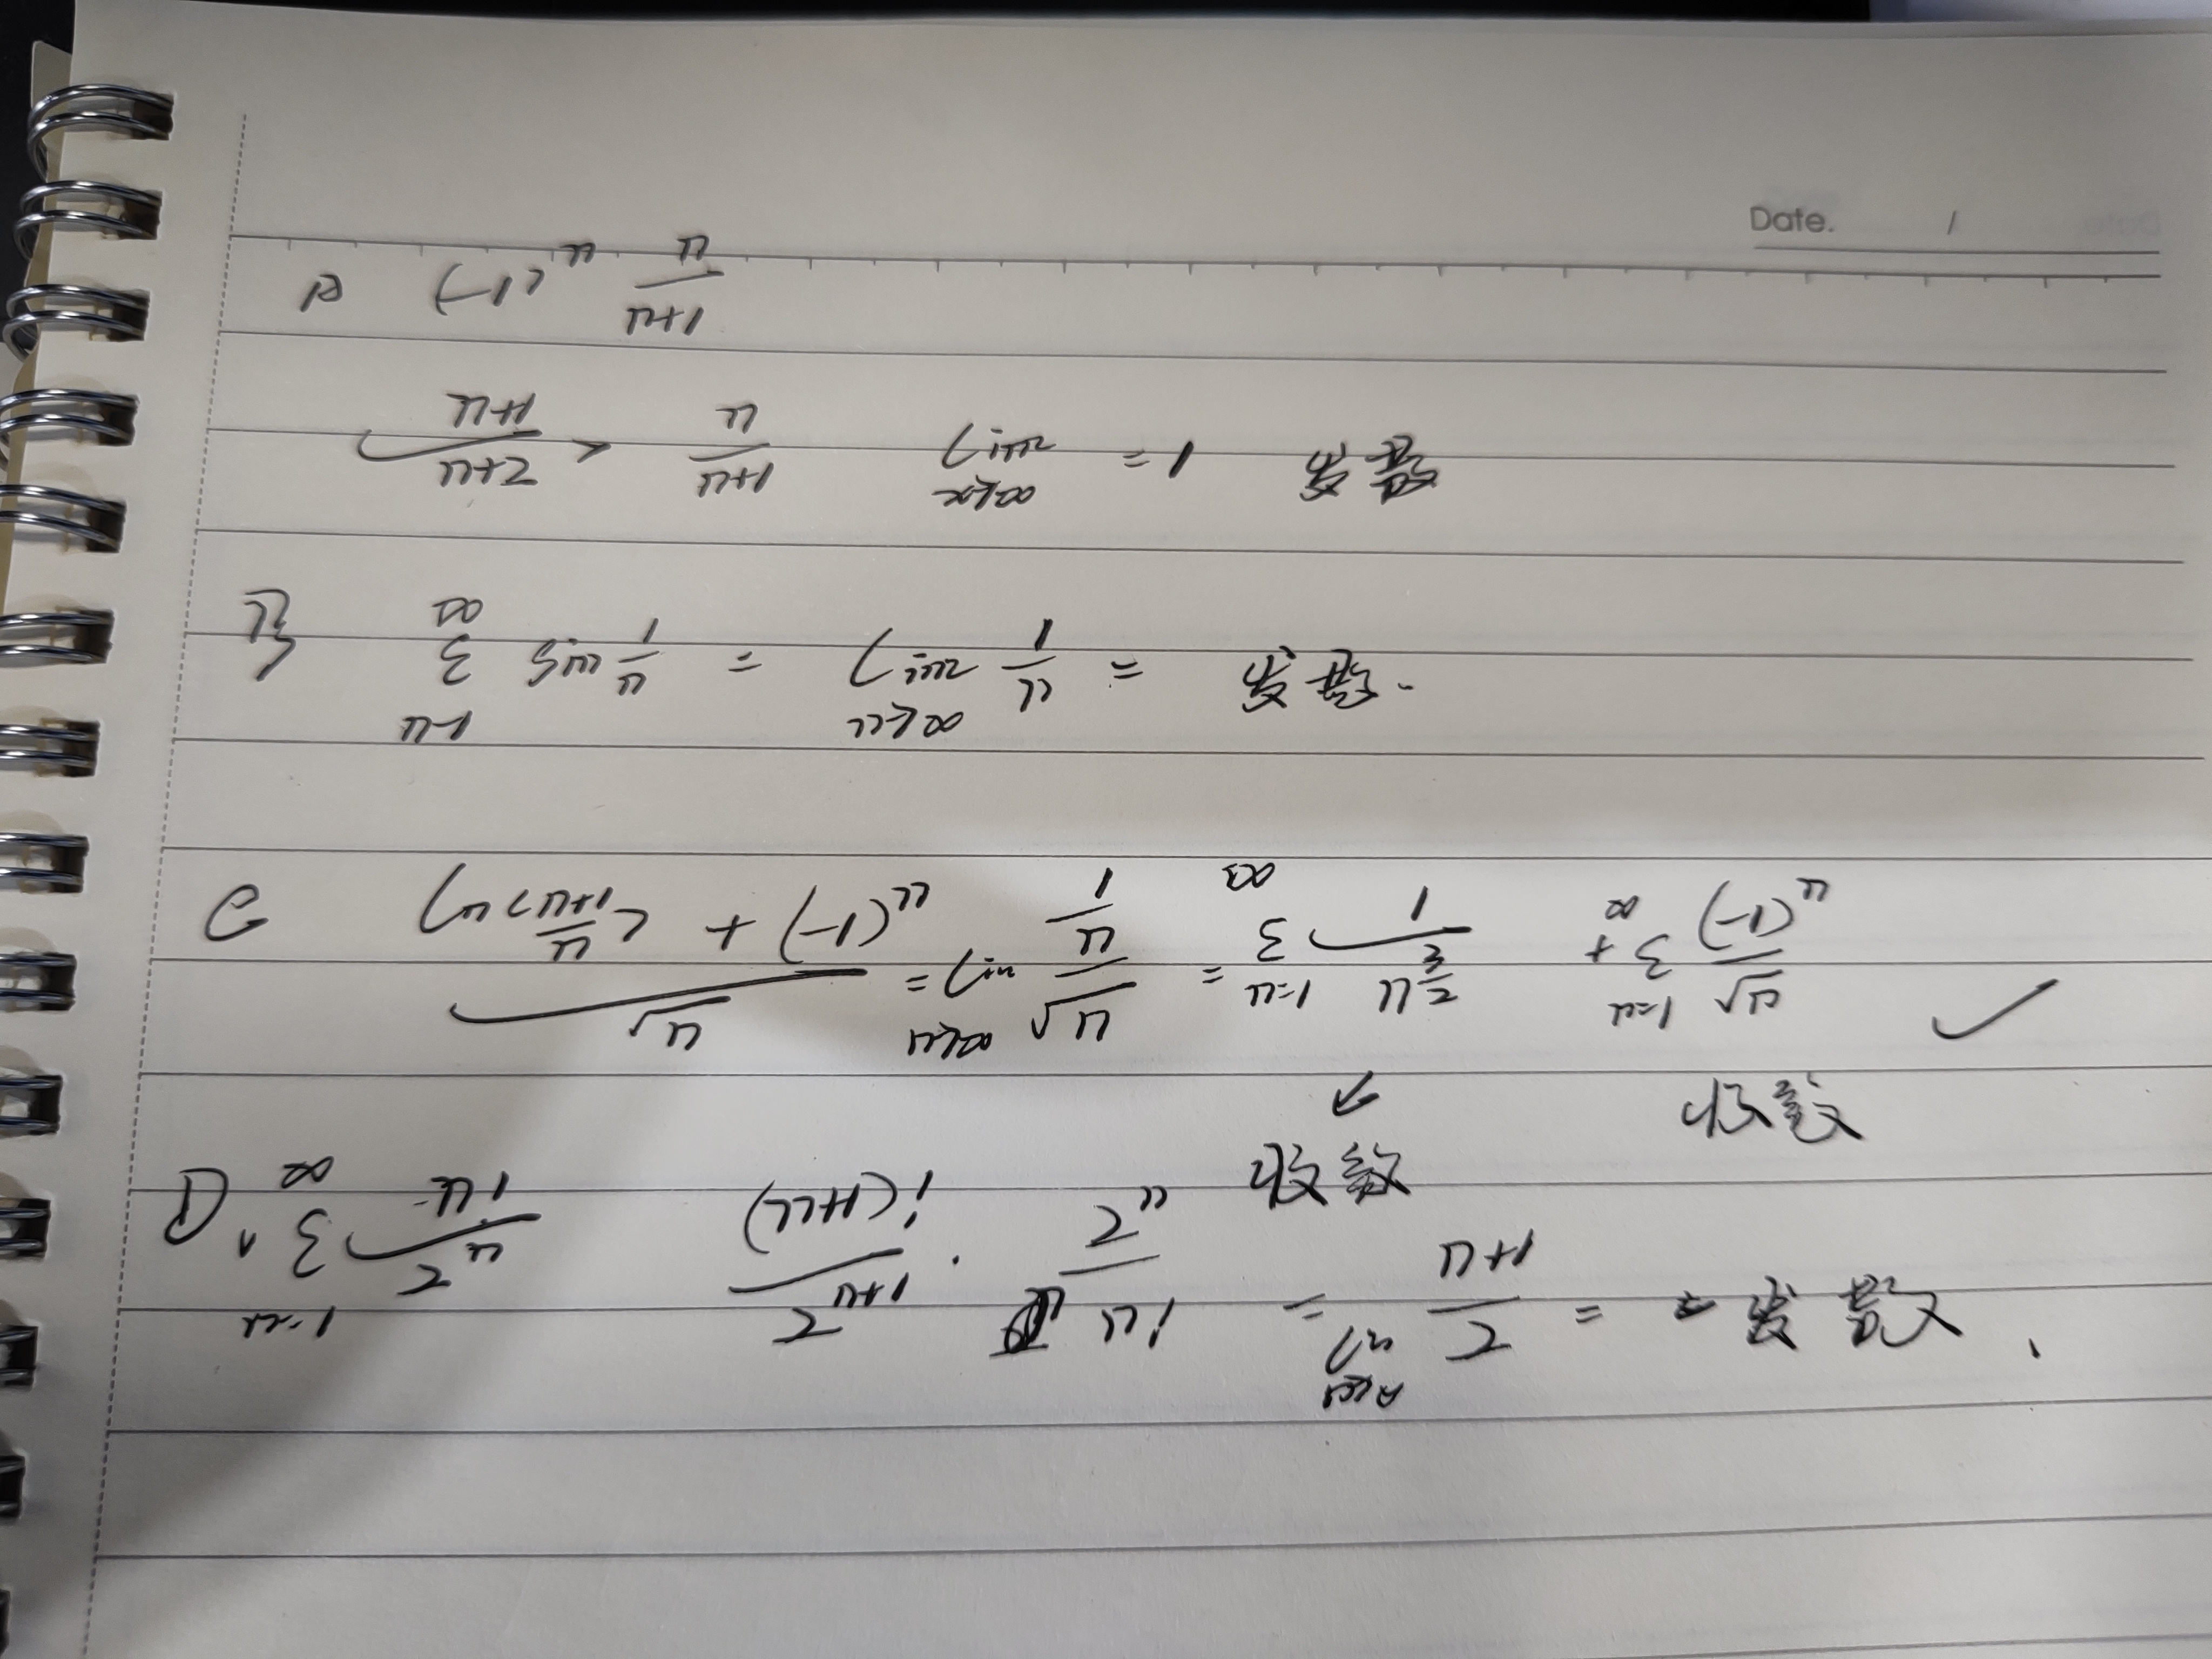 Date. /
A (-1)^n n/(n+1)
(n+1)/(n+2) > n/(n+1) lim x→∞ = 1 发散
B ∑ n=1 ∞ sin 1/n = lim n→∞ 1/n = 发散.
C (ln(n+1/n) + (-1)^n)/√n = lim n→∞ (1/n)/√n = ∑ n=1 ∞ 1/n^(3/2) + ∑ n=1 ∞ (-1)^n/√n ✓
↙ 收敛
收敛
D. ∑ n=1 ∞ n!/2^n (n+1)!/2^(n+1) · 2^n/n! = lim (n+1)/2 = 发散.